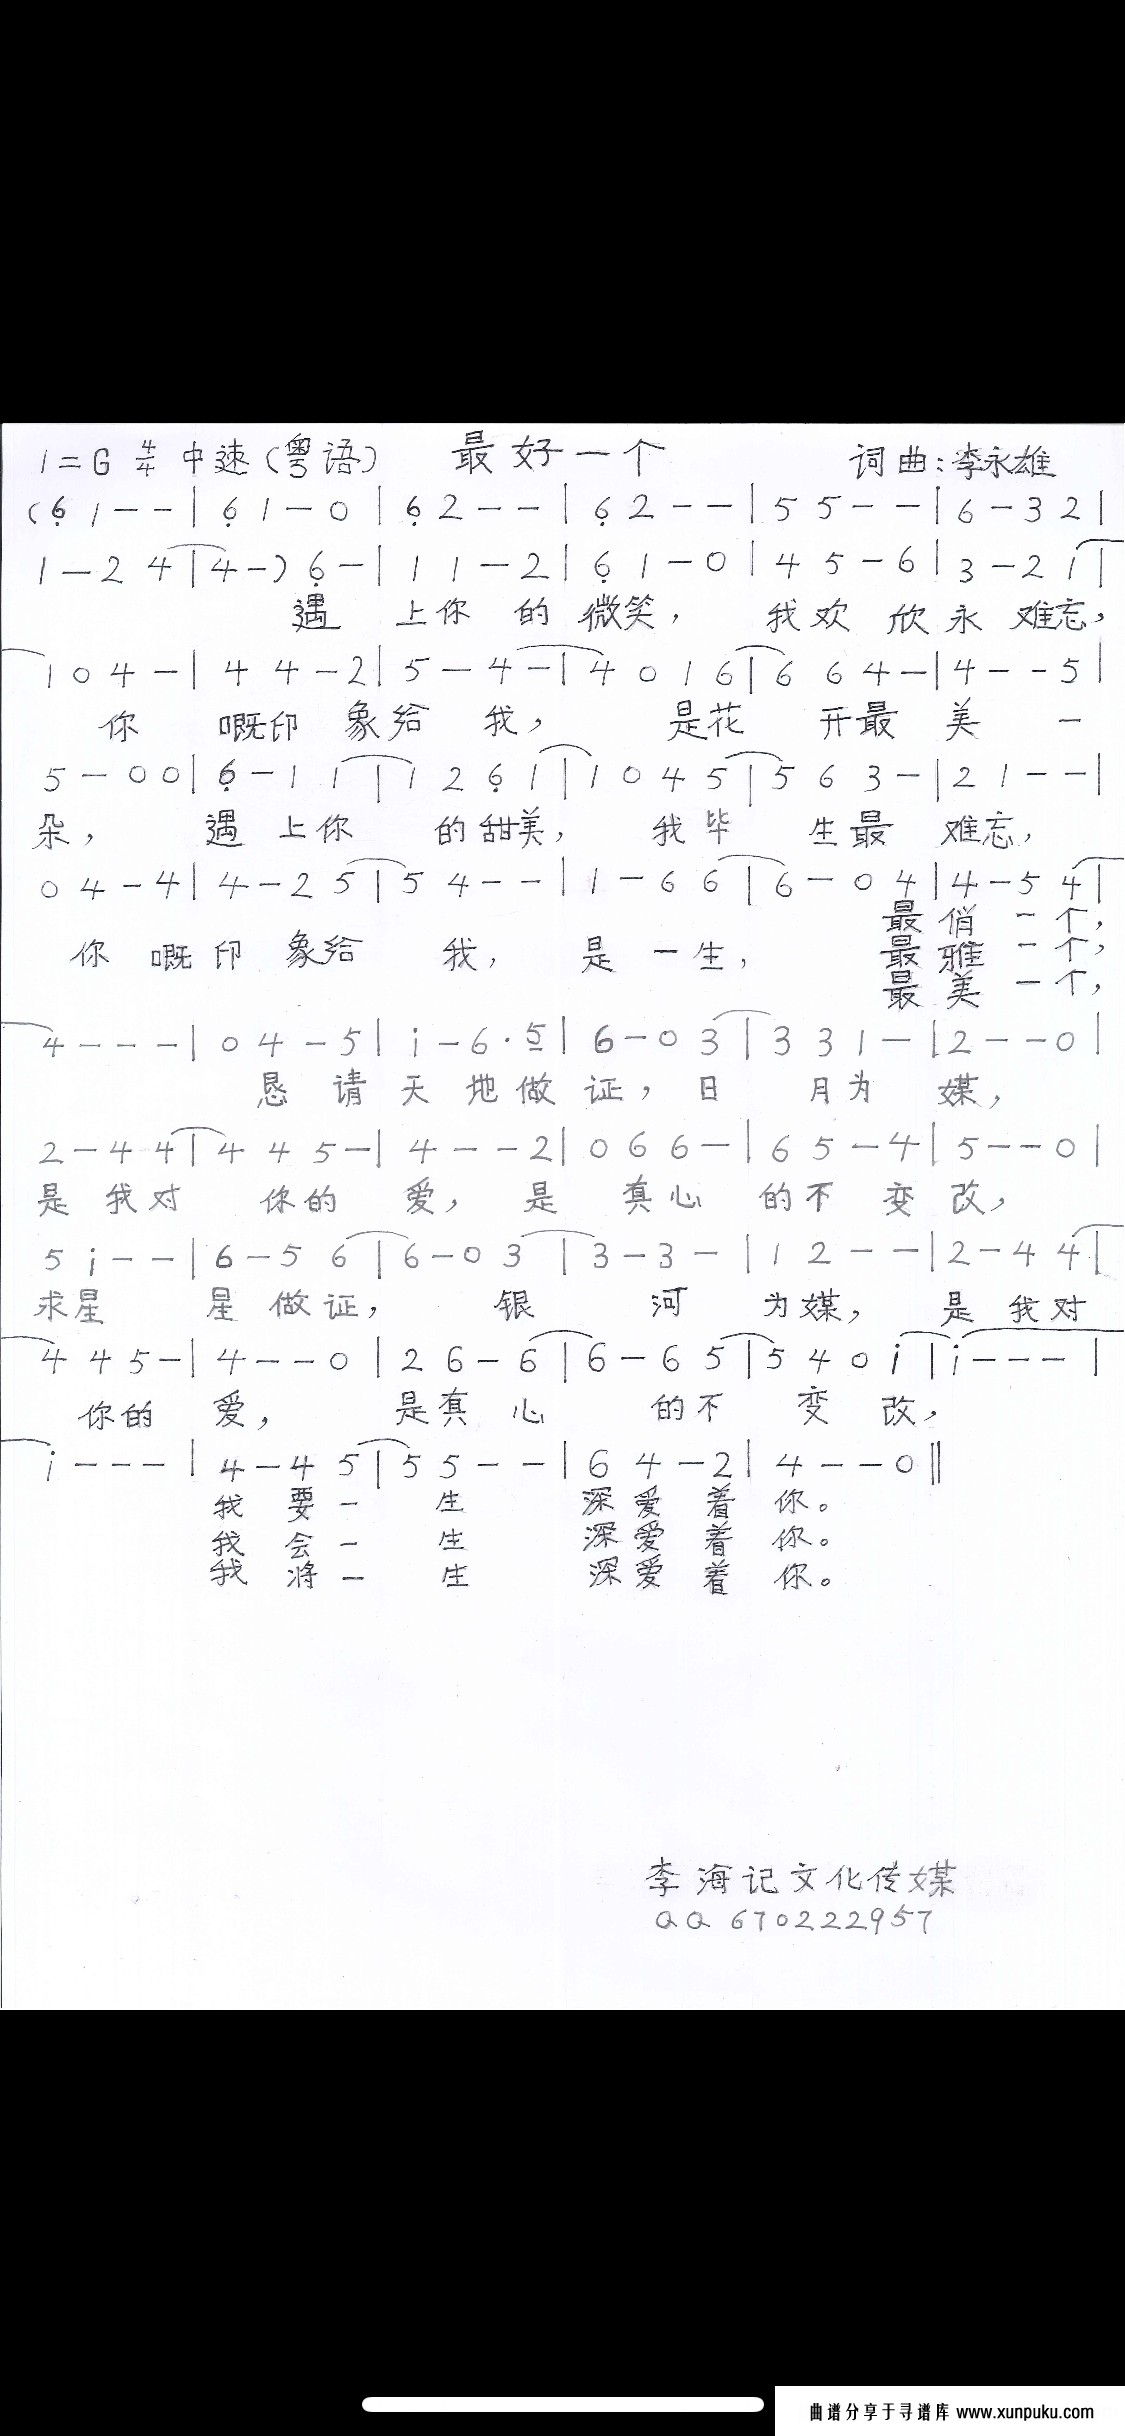 1=G 4/4 中速(粤语) 最好一个 词曲:李永雄
(6̣ 1 - - | 6̣ 1 - 0 | 6̣ 2 - - | 6̣ 2 - - | 5 5 - - | 6 - 3 2 |
1 - 2 4 | 4 - ) 6̣ - | 1 1 - 2 | 6̣ 1 - 0 | 4 5 - 6 | 3 - 2 1 |
遇 上你 的 微笑, 我欢 欣永 难忘,
1 0 4 - | 4 4 - 2 | 5 - 4 - | 4 0 1 6 | 6 6 4 - | 4 - - 5 |
你 嘅印 象给 我, 是花 开最 美 一
5 - 0 0 | 6̣ - 1 1 | 1 2 6̣ 1 | 1 0 4 5 | 5 6 3 - | 2 1 - - |
朵, 遇 上你 的甜美, 我毕 生最 难忘,
0 4 - 4 | 4 - 2 5 | 5 4 - - | 1 - 6 6 | 6 - 0 4 | 4 - 5 4 |
最俏一个,
你 嘅印 象给 我, 是 一生, 最雅一个,
最美一个,
4 - - - | 0 4 - 5 | i - 6 · 5̲ | 6 - 0 3 | 3 3 1 - | 2 - - 0 |
恳 请 天 地做 证, 日 月为 媒,
2 - 4 4 | 4 4 5 - | 4 - - 2 | 0 6 6 - | 6 5 - 4 | 5 - - 0 |
是 我对 你的 爱, 是 真心 的不 变 改,
5 i - - | 6 - 5 6 | 6 - 0 3 | 3 - 3 - | 1 2 - - | 2 - 4 4 |
求星 星 做证, 银 河 为媒, 是 我对
4 4 5 - | 4 - - 0 | 2 6 - 6 | 6 - 6 5 | 5 4 0 i | i - - - |
你的 爱, 是真 心 的不 变 改,
i - - - | 4 - 4 5 | 5 5 - - | 6 4 - 2 | 4 - - 0 ‖
我 要 一 生 深爱 着 你。
我 会 一 生 深爱 着 你。
我 将 一 生 深爱 着 你。
李海记文化传媒
QQ 670222957
曲谱分享于寻谱库 www.xunpuku.com